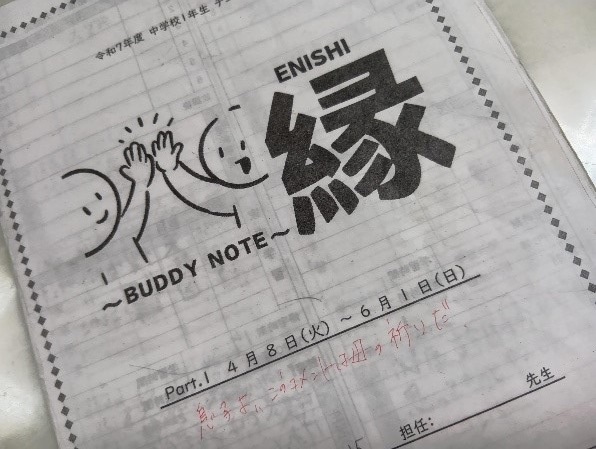 令和7年度 中学校1年生
ENISHI
縁
～BUDDY NOTE～
Part.1 4月8日(火) ～6月1日(日)
息子よ、コメントは母の祈りだ
担任: 先生